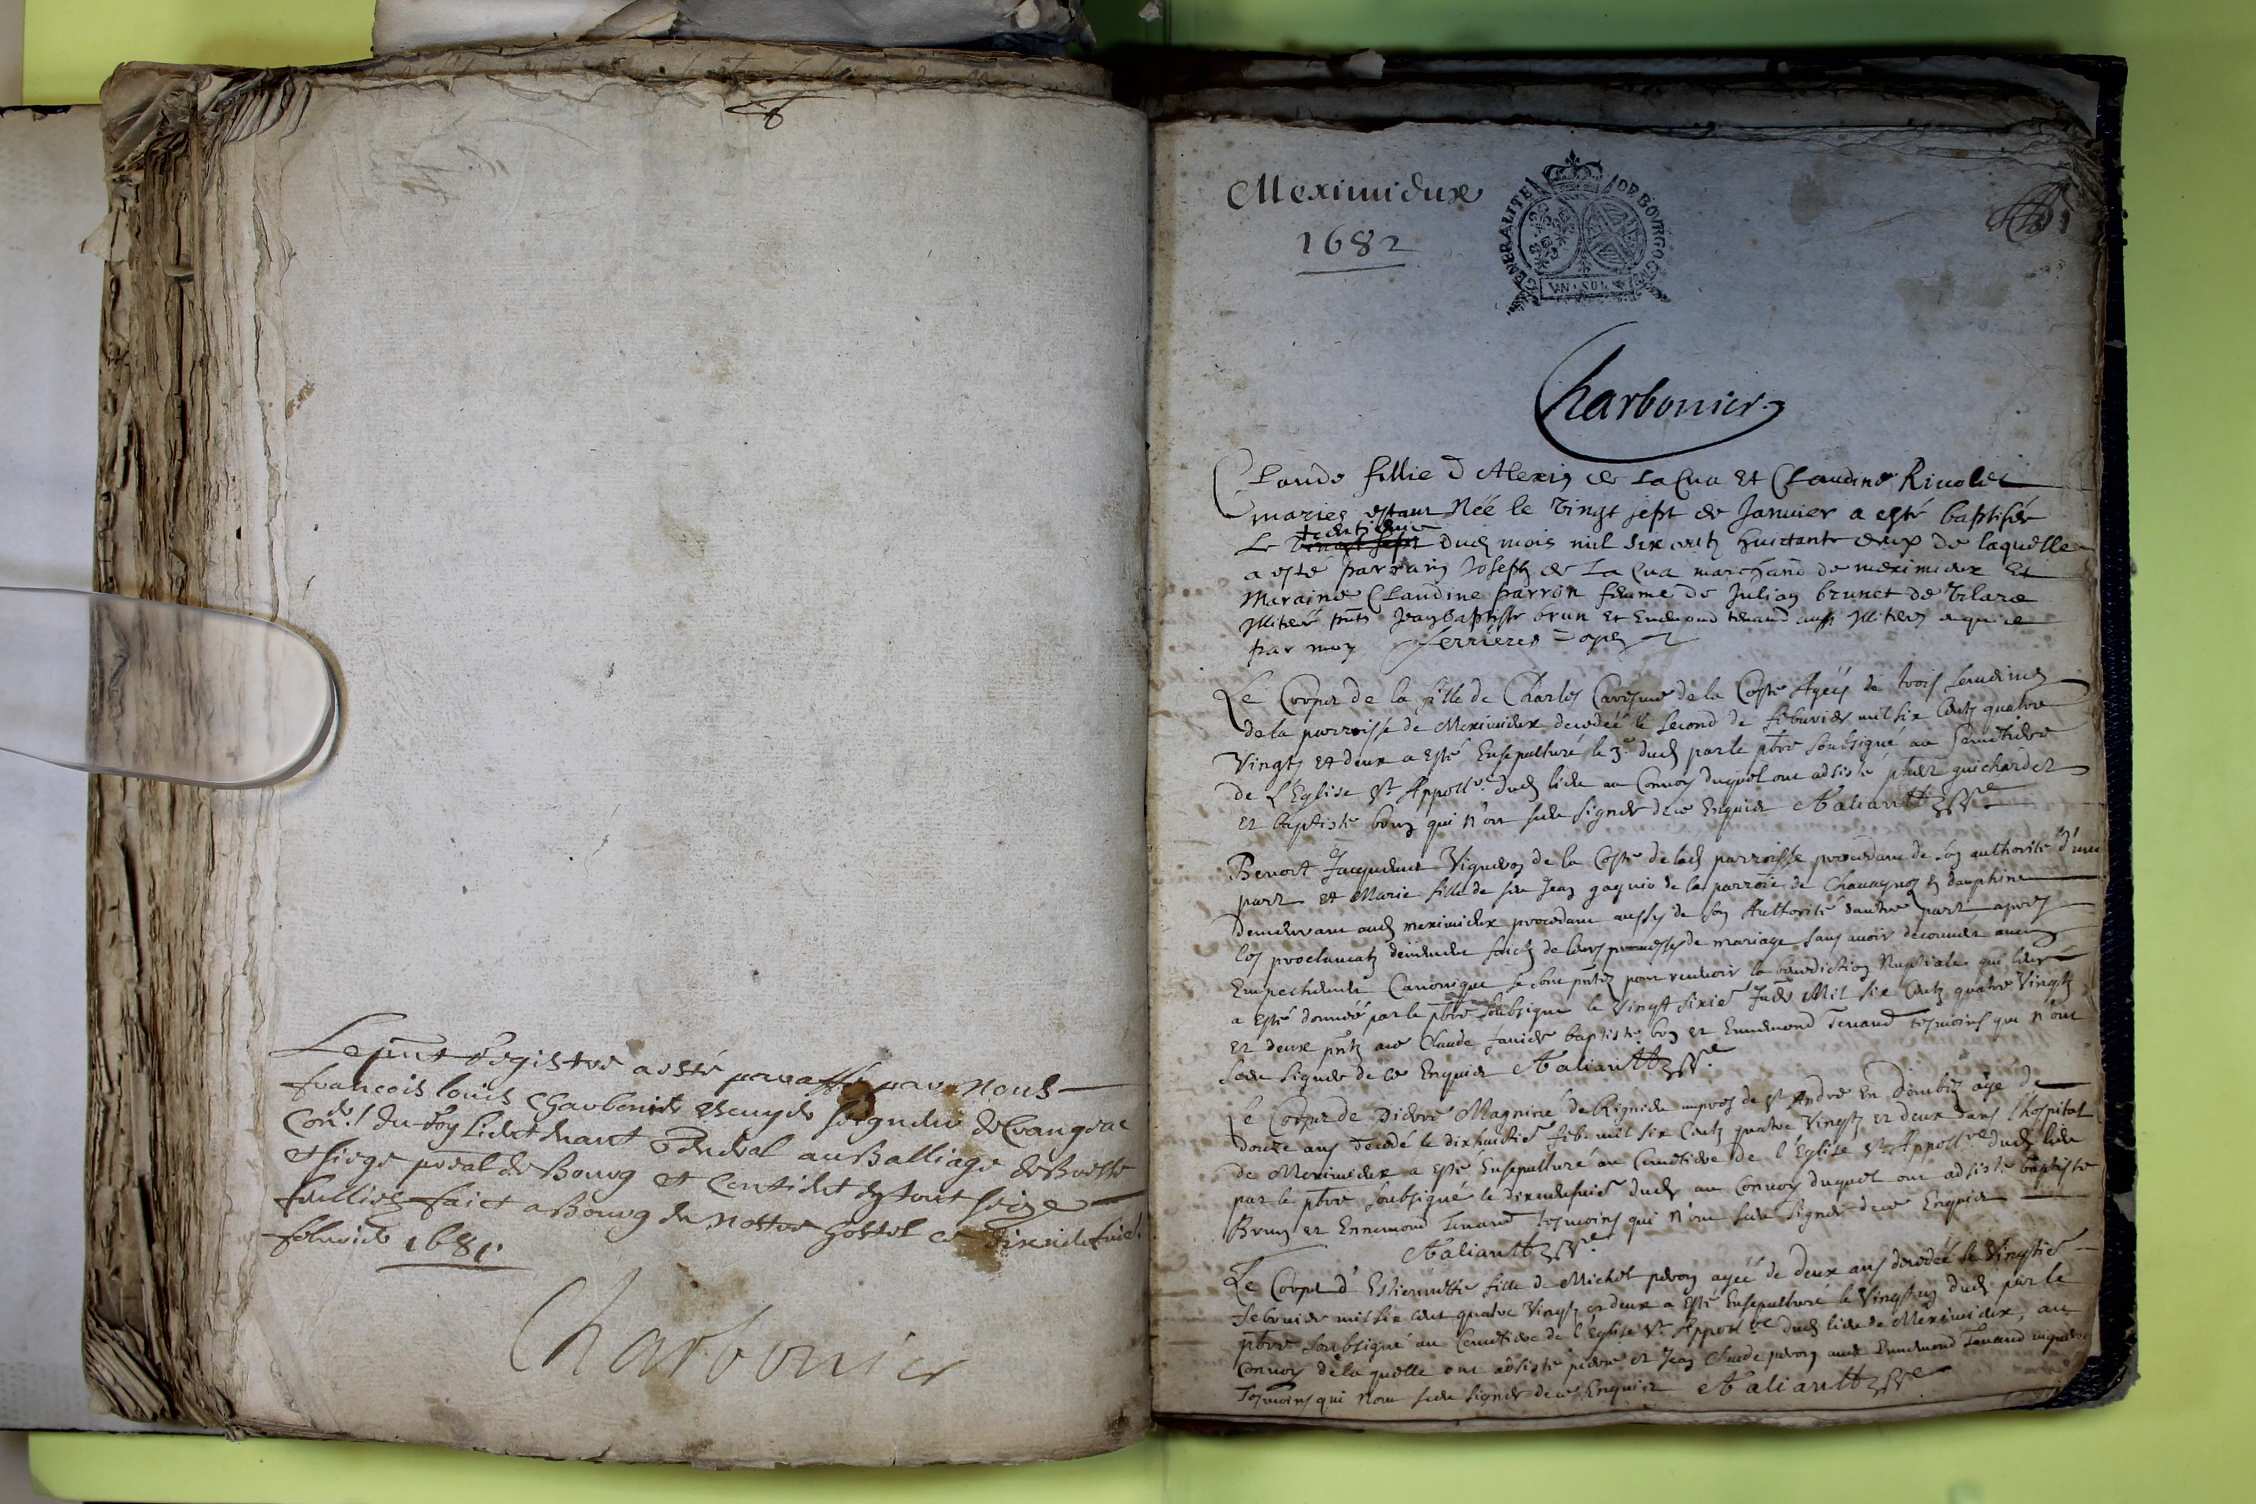 Le pnt Registre a esté paraffé par Nous
francois louis Charbonier escuyer seigneur de Crangeac
Con.er du Roy Lieutenant general au Balliage de Bresse
et siege pre.al de Bourg et contient en tout seize
feullies faict a Bourg en nostre hostel ce dixneufuie
febvrier 1681.
Charbonier
Meximieux
1682
GENERALITE DE BOVRGOGNE
VN SOL
Charbonier
Claude fillie d Alexis de La Cua et Claudine Riuolet
maries estant Née le vingt sept de Januier a esté baptisée
trentieme
Le vingt sept dud mois mil six centz huictante deux de laquelle
a este parrain Joseph de La Cua marchand de meximieux Et
Maraine Claudine parron feume de Julian brunet de
Illiteré pnts Jean baptiste brun Et Enemond tenand aussi Illiterez enquis
par moy ferrieres
Le Corps de la fille de Charles Caresme de la Coste Ageé de trois semaines
de la parroisse de Meximieux decedeé le second de febvrier mil six Centz quatre
Vingtz et deux a Esté Ensepulturé le 3e dud par le pbre soubsigné au Semetiere
de L'Eglise St Appollre dud lieu au Convoy duquel ont adsisté guichardet
et baptiste brun qui n'ont sceu signer de ce Enquis Aliault
Benoit Jacquemet Vigneron de la Coste de lad parroisse procedant de son authorité d'une
part et Marie fille de feu Jean gagnio de la parroie de Chavagnos en dauphine
demeurant aud meximieux procedant aussy de son Authorité dautre part apres
les proclamatz deuement faictz de leurs promesses de mariage sans avoir decouuert aucun
Empechement Canonique se sont pntez pour recevoir la benediction Nuptiale qui leur
a Esté donneé par le pbre Soubsigne le Vingt sixie Jade Mil six Centz quatre Vingtz
et deux pntz ace Claude Janier baptiste brun et Ennemond Tenand tesmoins qui n'ont
Sceu signer de ce Enquis Aliault
Le Corps de Pierre Magnine de Rignieu aupres de St André en Dombes age de
douze ans decede le dixhuictie feb. mil six Centz quatre Vingtz et deux dans l'hospital
de Meximieux a Esté Ensepulturé au Cimetiere de l'Eglise St Appollre dud lieu
par le pbre Soubsigné le dixneufuie dud au Convoy duquel ont adsisté baptiste
Brun et Ennemond Tenand tesmoins qui n'ont sceu signer de ce Enquis
Aliault
Le Corps d' Estiennette fille de Michel peron ageé de deux ans decedeé le Vingtie
febvrier mil six cent quatre Vingtz et deux a Esté Ensepulturé le Vingtun dud par le
pbre Soubsigné au Cemetiere de l'Eglise St Appollre dud lieu de Meximieux, au
Convoy de laquelle ont adsisté pierre et Jean Claude peron avec Ennemond Tenand
Tesmoins qui n'ont sceu signer de ce Enquis Aliault